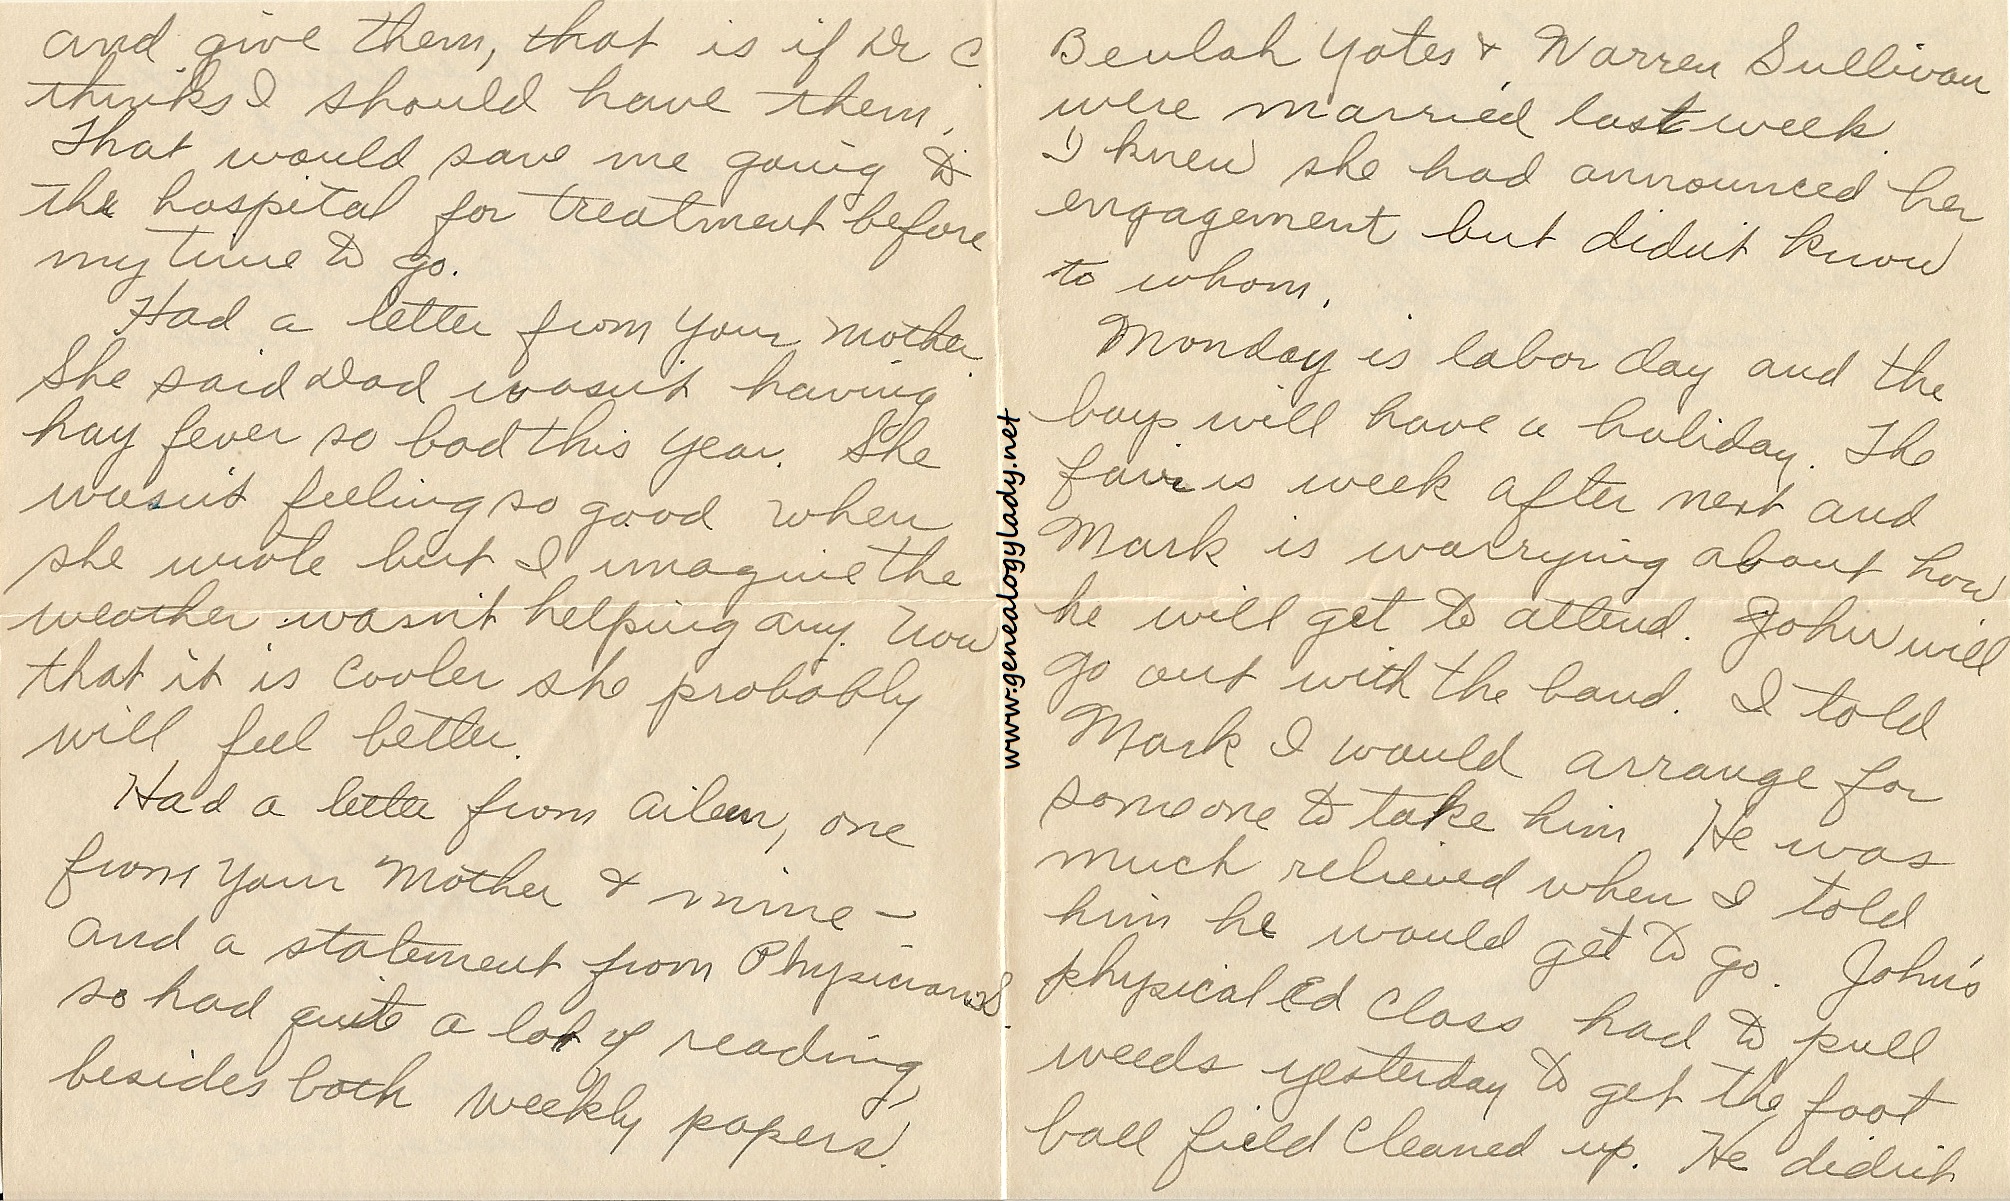 and give them, that is if Dr C
thinks I should have them.
That would save me going to
the hospital for treatment before
my time to go.
Had a letter from your mother.
She said Dad wasn't having
hay fever so bad this year. She
wasn't feeling so good when
she wrote but I imagine the
weather wasn't helping any. Now
that it is cooler she probably
will feel better.
Had a letter from Aileen, one
from your Mother & mine –
and a statement from Physicians
so had quite a lot of reading,
besides both weekly papers.
Beulah Yates & Warren Sullivan
were married last week.
I knew she had announced her
engagement but didn't know
to whom.
Monday is labor day and the
boys will have a holiday. The
fair is week after next and
Mark is worrying about how
he will get to attend. John will
go out with the band. I told
Mark I would arrange for
someone to take him. He was
much relieved when I told
him he would get to go. John's
physical Ed class had to pull
weeds yesterday to get the foot
ball field cleaned up. He didn't
www.genealogylady.net